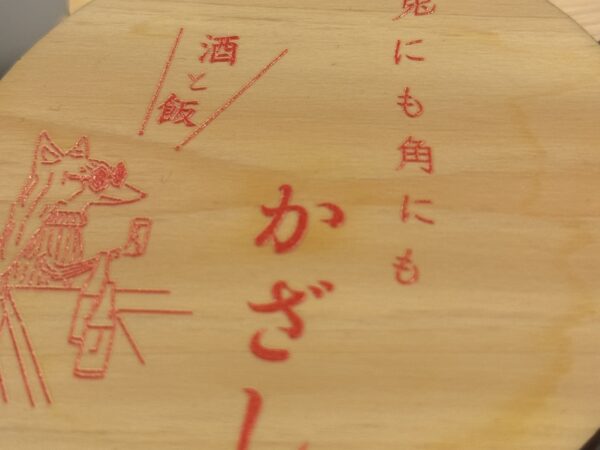 兎にも角にも
酒と飯
かざし